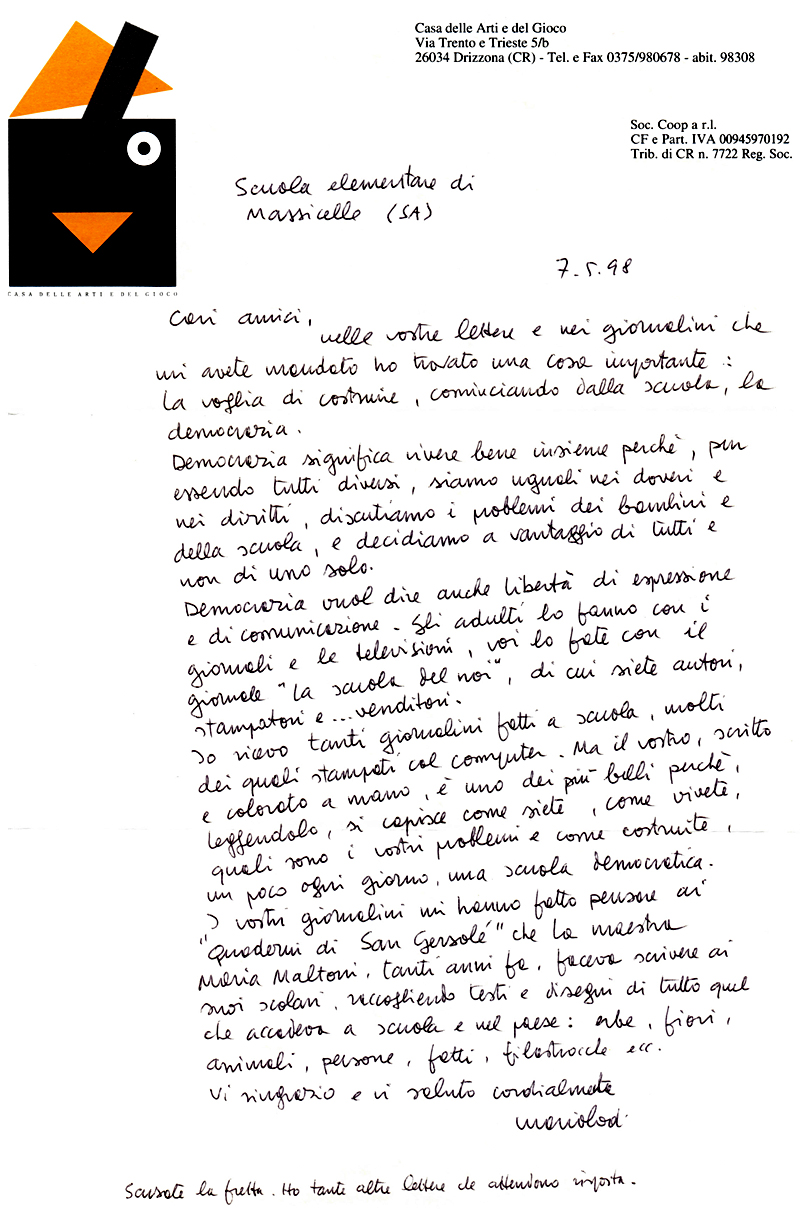 Casa delle Arti e del Gioco
Via Trento e Trieste 5/b
26034 Drizzona (CR) - Tel. e Fax 0375/980678 - abit. 98308
Soc. Coop a r.l.
CF e Part. IVA 00945970192
Trib. di CR n. 7722 Reg. Soc.
CASA DELLE ARTI E DEL GIOCO
Scuola elementare di
Massicelle (SA)
7.5.98
Cari amici,
nelle vostre lettere e nei giornalini che
mi avete mandato ho trovato una cosa importante :
la voglia di costruire, cominciando dalla scuola, la
democrazia.
Democrazia significa vivere bene insieme perchè, pur
essendo tutti diversi, siamo uguali nei doveri e
nei diritti, discutiamo i problemi dei bambini e
della scuola, e decidiamo a vantaggio di tutti e
non di uno solo.
Democrazia vuol dire anche libertà di espressione
e di comunicazione. Gli adulti lo fanno con i
giornali e le televisioni, voi lo fate con il
giornale "La scuola del noi", di cui siete autori,
stampatori e ... venditori.
Io ricevo tanti giornalini fatti a scuola, molti
dei quali stampati col computer. Ma il vostro, scritto
e colorato a mano, è uno dei più belli perchè,
leggendolo, si capisce come siete, come vivete,
quali sono i vostri problemi e come costruite,
un poco ogni giorno, una scuola democratica.
I vostri giornalini mi hanno fatto pensare ai
"Quaderni di San Gersolé" che la maestra
Maria Maltoni, tanti anni fa, faceva scrivere ai
suoi scolari, raccogliendo testi e disegni di tutto quel
che accadeva a scuola e nel paese : erbe, fiori,
animali, persone, fatti, filastrocche ecc.
Vi ringrazio e vi saluto cordialmente
mariolodi
Scusate la fretta. Ho tante altre lettere che attendono risposta.